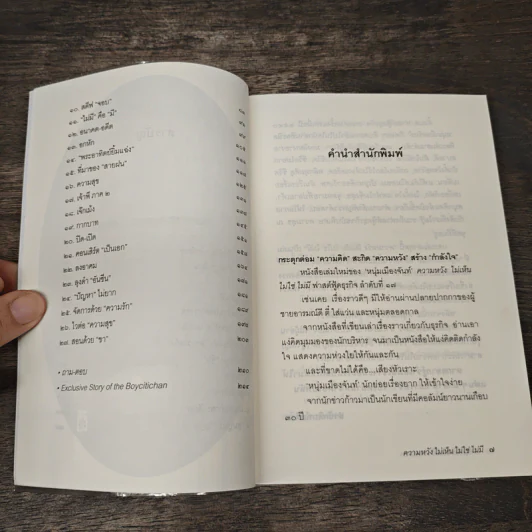 ๑๐. สตีฟ "จอบ"
๑๑. "ไม่มี" คือ "มี"
๑๒. อนาคต-อดีต
๑๓. อกหัก
๑๔. "พระอาทิตย์ยิ้มแฉ่ง"
๑๕. ที่มาของ "สายฝน"
๑๖. ความสุข
๑๗. เจ้าพี่ ภาค ๒
๑๘. เจ๊กเม้ง
๑๙. กากบาท
๒๐. ปิด-เปิด
๒๑. คอนเสิร์ต "เป็นเอก"
๒๒. ลงธาคม
๒๓. ลุงดำ "อันซีน"
๒๔. "ปัญหา" ไม่ยาก
๒๕. จัดการด้วย "ความรัก"
๒๖. ไวต่อ "ความสุข"
๒๗. สอนด้วย "ชา"
• ถาม-ตอบ ๒๐๑
• Exclusive Story of the Boycitichan ๒๑๙
คำนำสำนักพิมพ์
กระตุกต่อม "ความคิด" สะกิด "ความหวัง" สร้าง "กำลังใจ"
หนังสือเล่มใหม่ของ 'หนุ่มเมืองจันท์' ความหวัง ไม่เห็น
ไม่ใช่ ไม่มี ฟาสต์ฟู้ดธุรกิจ ลำดับที่ ๑๗
เช่นเคย เรื่องราวดีๆ มีให้อ่านผ่านปลายปากกาของผู้
ชายอารมณ์ดี ตี๋ ใส่แว่น และหนุ่มตลอดกาล
จากหนังสือที่เขียนเล่าเรื่องราวเกี่ยวกับธุรกิจ อ่านเอา
แง่คิดมุมมองของนักบริหาร จนมาเป็นหนังสือให้แง่คิดติดกำลัง
ใจ แสดงความห่วงใยให้กันและกัน
และที่ขาดไม่ได้คือ...เสียงหัวเราะ
'หนุ่มเมืองจันท์' นักย่อยเรื่องยาก ให้เข้าใจง่าย
จากนักข่าวก้าวมาเป็นนักเขียนที่มีคอลัมน์ยาวนานเกือบ
๓๐ ปี
ความหวัง ไม่เห็น ไม่ใช่ ไม่มี ๗